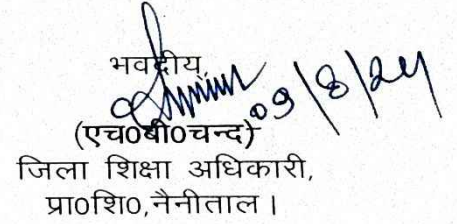 भवदीय
09/8/24
(एच०बी०चन्द)
जिला शिक्षा अधिकारी,
प्रा०शि०,नैनीताल।